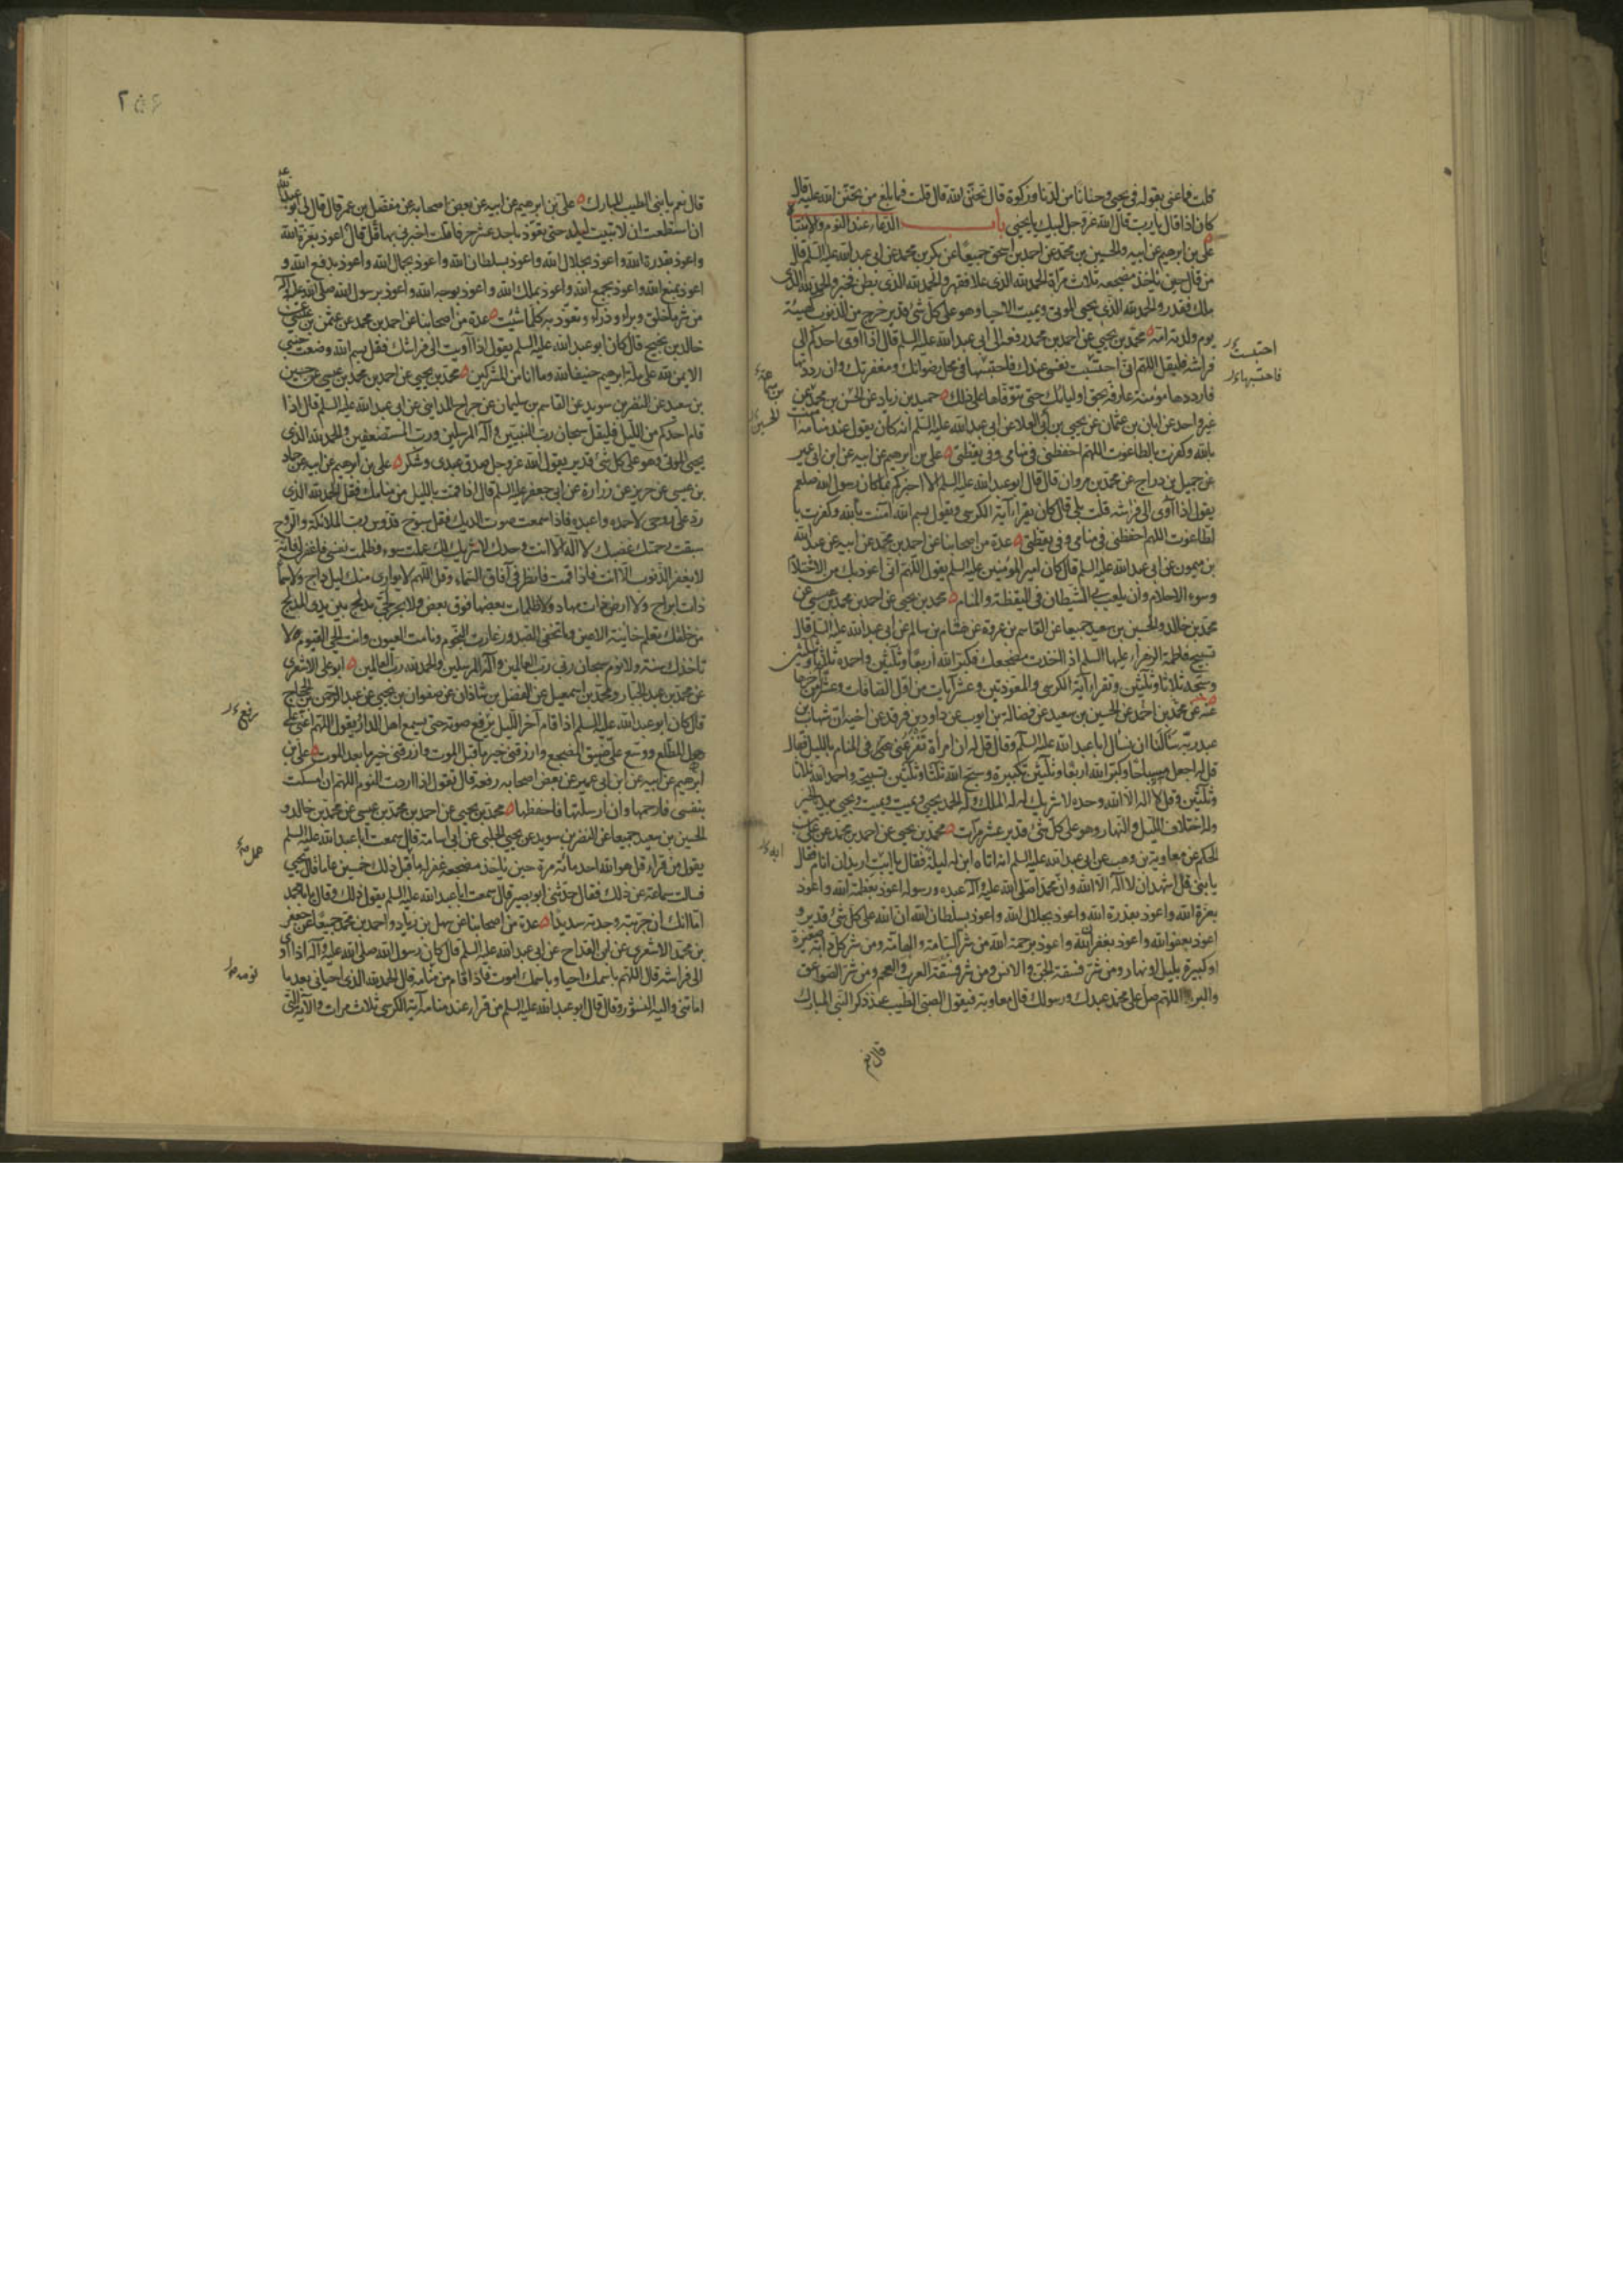 قلت فما عنى بقوله فى يحيى وحنانا من لدنا وزكوة قال تحنّن الله قال قلت فما بلغ من تحنّن الله عليه قال
كان اذا قال يا رب قال الله عز وجل لبيك يا يحيى باب الدعاء عند النوم والانتباه
على بن ابرهيم عن ابيه والحسين بن محمد عن احمد بن اسحق جميعا عن بكر بن محمد عن ابى عبد الله عليه السلم قال
من قال حين ياخذ مضجعه ثلاث مرات الحمد لله الذى علا فقهر والحمد لله الذى بطن فخبر والحمد لله الذى
ملك فقدر والحمد لله الذى يحيى الموتى ويميت الاحيا وهو على كل شئ قدير خرج من الذنوب كهيئة
يوم ولدته امه محمد بن يحيى عن احمد بن محمد رفعه الى ابى عبد الله عليه السلم قال اذا آوى احدكم الى
فراشه فليقل اللهم انى احتسبت نفسى عندك فاحتبسها فى محل رضوانك ومغفرتك وان رددتها
فارددها مؤمنة عارفة بحق اوليائك حتى تتوفاها على ذلك حميد بن زياد عن الحسن بن محمد عن
غير واحد عن ابان بن عثمان عن يحيى بن ابى العلا عن ابى عبد الله عليه السلم انه كان يقول عند منامه آمنت
بالله وكفرت بالطاغوت اللهم احفظنى فى منامى وفى يقظتى على بن ابرهيم عن ابيه عن ابن ابى عمير
عن جميل بن دراج عن محمد بن مروان قال قال ابو عبد الله عليه السلم الا اخبركم بما كان رسول الله صلعم
يقول اذا آوى الى فراشه قلت بلى قال كان يقرا آية الكرسى ويقول بسم الله آمنت بالله وكفرت با
لطاغوت اللهم احفظنى فى منامى وفى يقظتى عدة من اصحابنا عن احمد بن محمد عن ابيه عن عبد الله
بن ميمون عن ابى عبد الله عليه السلم قال كان امير المؤمنين عليه السلم يقول اللهم انى اعوذ بك من الاحتلام
وسوء الاحلام وان يلعب بى الشيطان فى اليقظة والمنام محمد بن يحيى عن احمد بن محمد بن عيسى عن
محمد بن خالد والحسين بن سعيد جميعا عن القاسم بن عروة عن هشام بن سالم عن ابى عبد الله عليه السلم قال
تسبيح فاطمة الزهراء عليها السلم اذا اخذت مضجعك فكبر الله اربعا وثلثين واحمده ثلاثا وثلثين
وسبحه ثلاثا وثلثين وتقرا آية الكرسى والمعوذتين وعشر آيات من اول الصافات وعشرا من آخرها
عنه عن محمد بن احمد عن الحسين بن سعيد عن فضالة بن ايوب عن داود بن فرقد عن اخيه ان شهاب بن
عبد ربه سألنا ان نسال ابا عبد الله عليه السلم وقال قل له ان امرأة تفزعنى فى المنام بالليل فقال
قل له اجعل مسباحا وكبر الله اربعا وثلثين تكبيرة وسبح الله ثلثا وثلثين تسبيحة واحمد الله ثلاثا
وثلثين وقل لا اله الا الله وحده لا شريك له له الملك وله الحمد يحيى ويميت ويميت ويحيى بيده الخير
وله اختلاف الليل والنهار وهو على كل شئ قدير عشر مرات محمد بن يحيى عن احمد بن محمد عن على بن
الحكم عن معاوية بن وهب عن ابى عبد الله عليه السلم انه اتاه ابن له ليلة فقال يا ابت اريد ان انام فقال
يا بنى قل اشهد ان لا اله الا الله وان محمدا صلى الله عليه وآله عبده ورسوله اعوذ بعظمة الله واعوذ
بعزة الله واعوذ بقدرة الله واعوذ بجلال الله واعوذ بسلطان الله ان الله على كل شئ قدير و
اعوذ بعفو الله واعوذ بغفران الله واعوذ برحمة الله من شر السامة والهامة ومن شر كل دابة صغيرة
او كبيرة بليل او نهار ومن شر فسقة الجن والانس ومن شر فسقة العرب والعجم ومن شر الصواعق
والبرد اللهم صل على محمد عبدك ورسولك قال معاوية فيقول الصبى الطيب عند ذكر النبى المبارك
قال نعم
احتبست
فاحتسبها
بن سماعة
الحسين
ابنه
٢٥٦
قال نعم يا بنى الطيب المبارك على بن ابرهيم عن ابيه عن بعض اصحابه عن مفضل بن عمر قال قال لى ابو عبد الله
ان استطعت ان لا تبيت ليلة حتى تعوذ باحد عشر حرفا قلت اخبرنى بها قال قل اعوذ بعزة الله
واعوذ بقدرة الله واعوذ بجلال الله واعوذ بسلطان الله واعوذ بجمال الله واعوذ بدفع الله و
اعوذ بمنع الله واعوذ بجمع الله واعوذ بملك الله واعوذ بوجه الله واعوذ برسول الله صلى الله عليه وآله
من شر ما خلق وبراء وذراء وتعوذ به كلما شئت عدة من اصحابنا عن احمد بن محمد عن عثمن بن عيسى عن
خالد بن نجيح قال كان ابو عبد الله عليه السلم يقول اذا آويت الى فراشك فقل بسم الله وضعت جنبى
الايمن لله على ملة ابرهيم حنيفا لله وما انا من المشركين محمد بن يحيى عن احمد بن محمد بن عيسى عن حسين
بن سعيد عن النضر بن سويد عن القاسم بن سليمان عن جراح المداينى عن ابى عبد الله عليه السلم قال اذا
قام احدكم من الليل فليقل سبحان رب النبيين واله المرسلين ورب المستضعفين والحمد لله الذى
يحيى الموتى وهو على كل شئ قدير يقول الله عز وجل صدق عبدى وشكر على بن ابرهيم عن ابيه عن حماد
بن عيسى عن حريز عن زرارة عن ابى جعفر عليه السلم قال اذا قمت بالليل من منامك فقل الحمد لله الذى
رد على روحى لاحمده واعبده فاذا سمعت صوت الديك فقل سبوح قدوس رب الملائكة والروح
سبقت رحمتك غضبك لا اله الا انت وحدك لا شريك لك عملت سوءا وظلمت نفسى فاغفر لى فانه
لا يغفر الذنوب الا انت فاذا قمت فانظر فى آفاق السماء وقل اللهم لا يوارى منك ليل داج ولا سماء
ذات ابراج ولا ارض ذات مهاد ولا ظلمات بعضها فوق بعض ولا بحر لجى تدلج بين يدى المدلج
من خلقك تعلم خائنة الاعين وما تخفى الصدور غارت النجوم ونامت العيون وانت الحى القيوم لا
تاخذك سنة ولا نوم سبحان ربى رب العالمين واله المرسلين والحمد لله رب العالمين ابو على الاشعرى
عن محمد بن عبد الجبار ومحمد بن اسمعيل عن الفضل بن شاذان عن صفوان بن يحيى عن عبد الرحمن بن الحجاج
قال كان ابو عبد الله عليه السلم اذا قام آخر الليل يرفع صوته حتى يسمع اهل الدار يقول اللهم اعنى على
هول المطلع ووسع على ضيق المضجع وارزقنى خير ما قبل الموت وارزقنى خير ما بعد الموت على بن
ابرهيم عن ابيه عن ابن ابى عمير عن بعض اصحابه رفعه قال تقول اذا اردت النوم اللهم ان امسكت
بنفسى فارحمها وان ارسلتها فاحفظها محمد بن يحيى عن احمد بن محمد بن عيسى عن محمد بن خالد و
الحسين بن سعيد جميعا عن النضر بن سويد عن يحيى الحلبى عن ابى اسامة قال سمعت ابا عبد الله عليه السلم
يقول من قراء قل هو الله احد مائة مرة حين ياخذ مضجعه غفر له ما قبل ذلك خمسين عاما قال يحيى
فسالت سماعة عن ذلك فقال حدثنى ابو بصير قال سمعت ابا عبد الله عليه السلم يقول ذلك وقال يا با محمد
اما انك ان جربته وجدته سديدا عدة من اصحابنا عن سهل بن زياد واحمد بن محمد جميعا عن جعفر
بن محمد الاشعرى عن ابن القداح عن ابى عبد الله عليه السلم قال كان رسول الله صلى الله عليه وآله اذا آوى
الى فراشه قال اللهم باسمك احيا وباسمك اموت فاذا قام من منامه قال الحمد لله الذى احيانى بعد ما
اماتنى واليه النشور وقال قال ابو عبد الله عليه السلم من قراء عند منامه آية الكرسى ثلاث مرات والآية التى
رفع
نومه